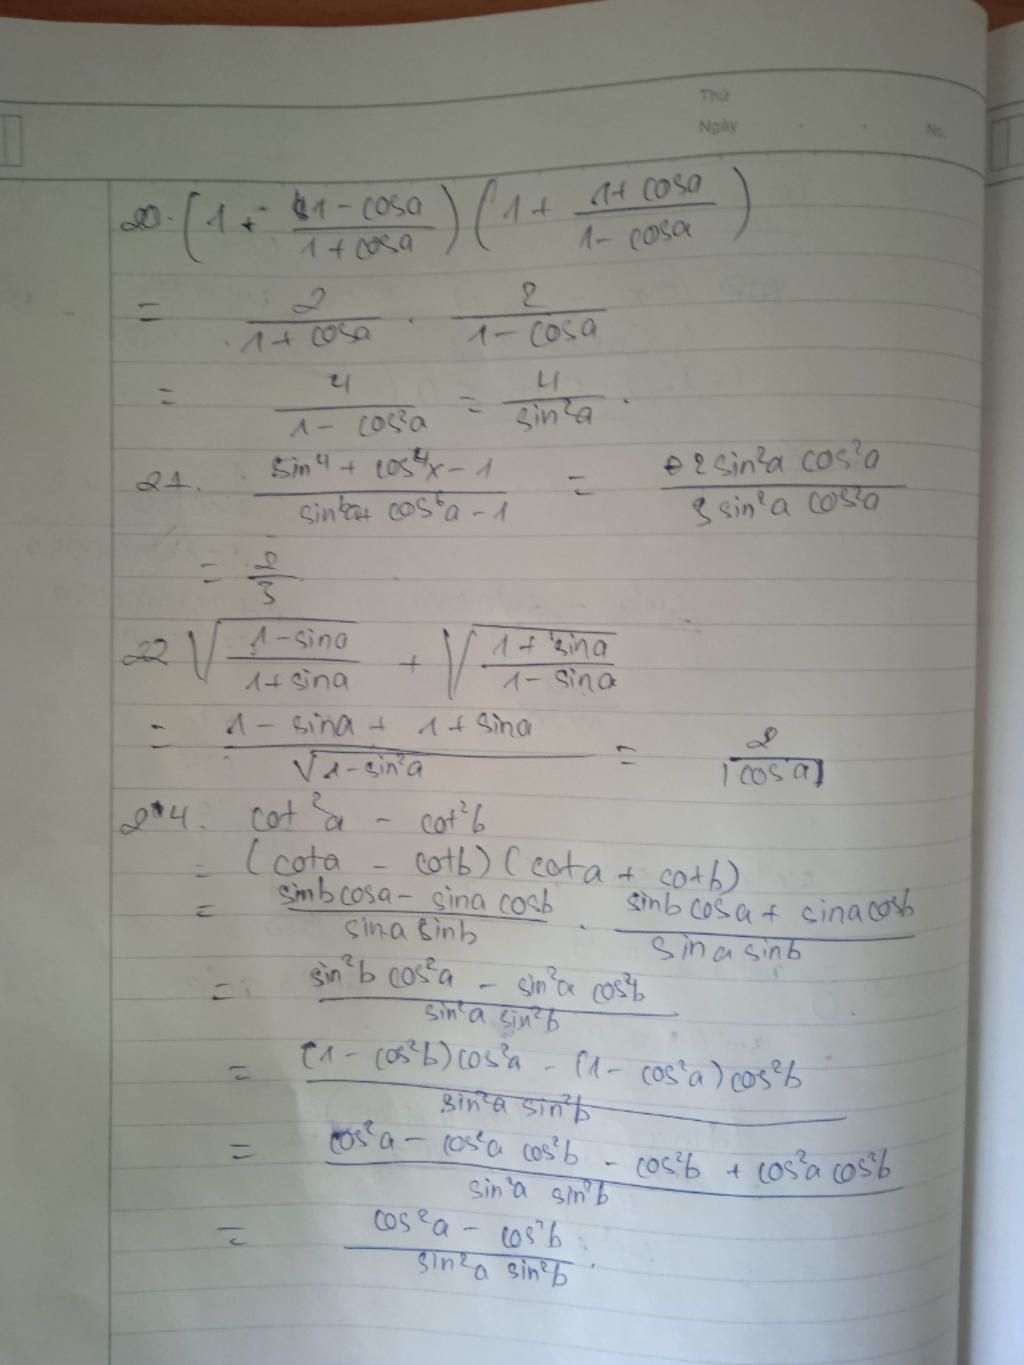 Thứ
Ngày - - No.
20. (1 + (1 - cosa)/(1 + cosa)) (1 + (1 + cosa)/(1 - cosa))
= 2/(1 + cosa) . 2/(1 - cosa)
= 4/(1 - cos²a) = 4/sin²a .
21. (sin⁴ + cos⁴x - 1)/(sin⁶a + cos⁶a - 1) = (2 sin²a cos²a)/(3 sin²a cos²a)
= 2/3
22 √((1 - sina)/(1 + sina)) + √((1 + sina)/(1 - sina))
= (1 - sina + 1 + sina)/√(1 - sin²a) = 2/|cosa|
24. cot²a - cot²b
= (cota - cotb)(cota + cotb)
= (sinb cosa - sina cosb)/(sina sinb) . (sinb cosa + sina cosb)/(sina sinb)
= (sin²b cos²a - sin²a cos²b)/(sin²a sin²b)
= ((1 - cos²b)cos²a - (1 - cos²a)cos²b)/(sin²a sin²b)
= (cos²a - cos²a cos²b - cos²b + cos²a cos²b)/(sin²a sin²b)
= (cos²a - cos²b)/(sin²a sin²b) .